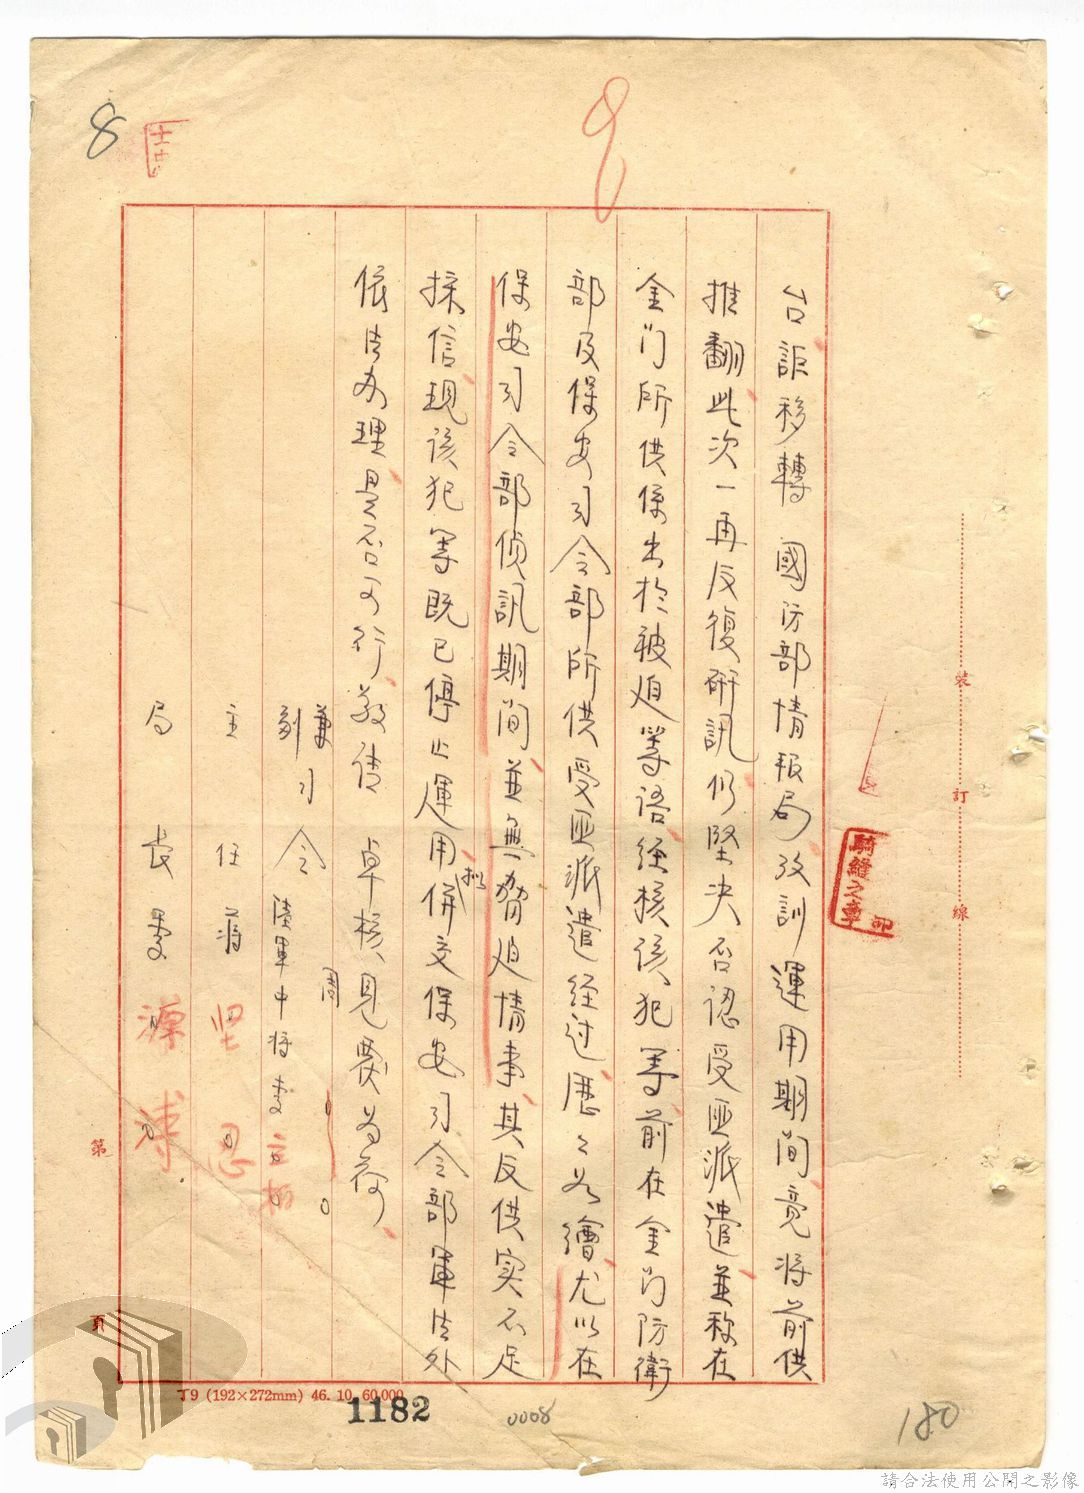 8
台詎移轉　國防部情報局考訓運用期間竟將前供
推翻此次一再反復研訊仍堅決否認受匪派遣並称在
金门所供係出於被迫等语经核该犯等前在金门防衛
部及保安司令部所供受匪派遣经过歷々如繪尤以在
保安司令部偵訊期间並無脅迫情事其反供实不足
採信現该犯等既已停止運用拟併交保安司令部軍法外
依法办理是否可行敬请　卓核見覆为荷
兼司令周
副司令陸軍中将李立柏
主任蒋堅忍
局長李
裝
訂
線
騎縫之章
第
頁
T9 (192×272mm) 46. 10. 60,000
1182
0008
180
請合法使用公開之影像